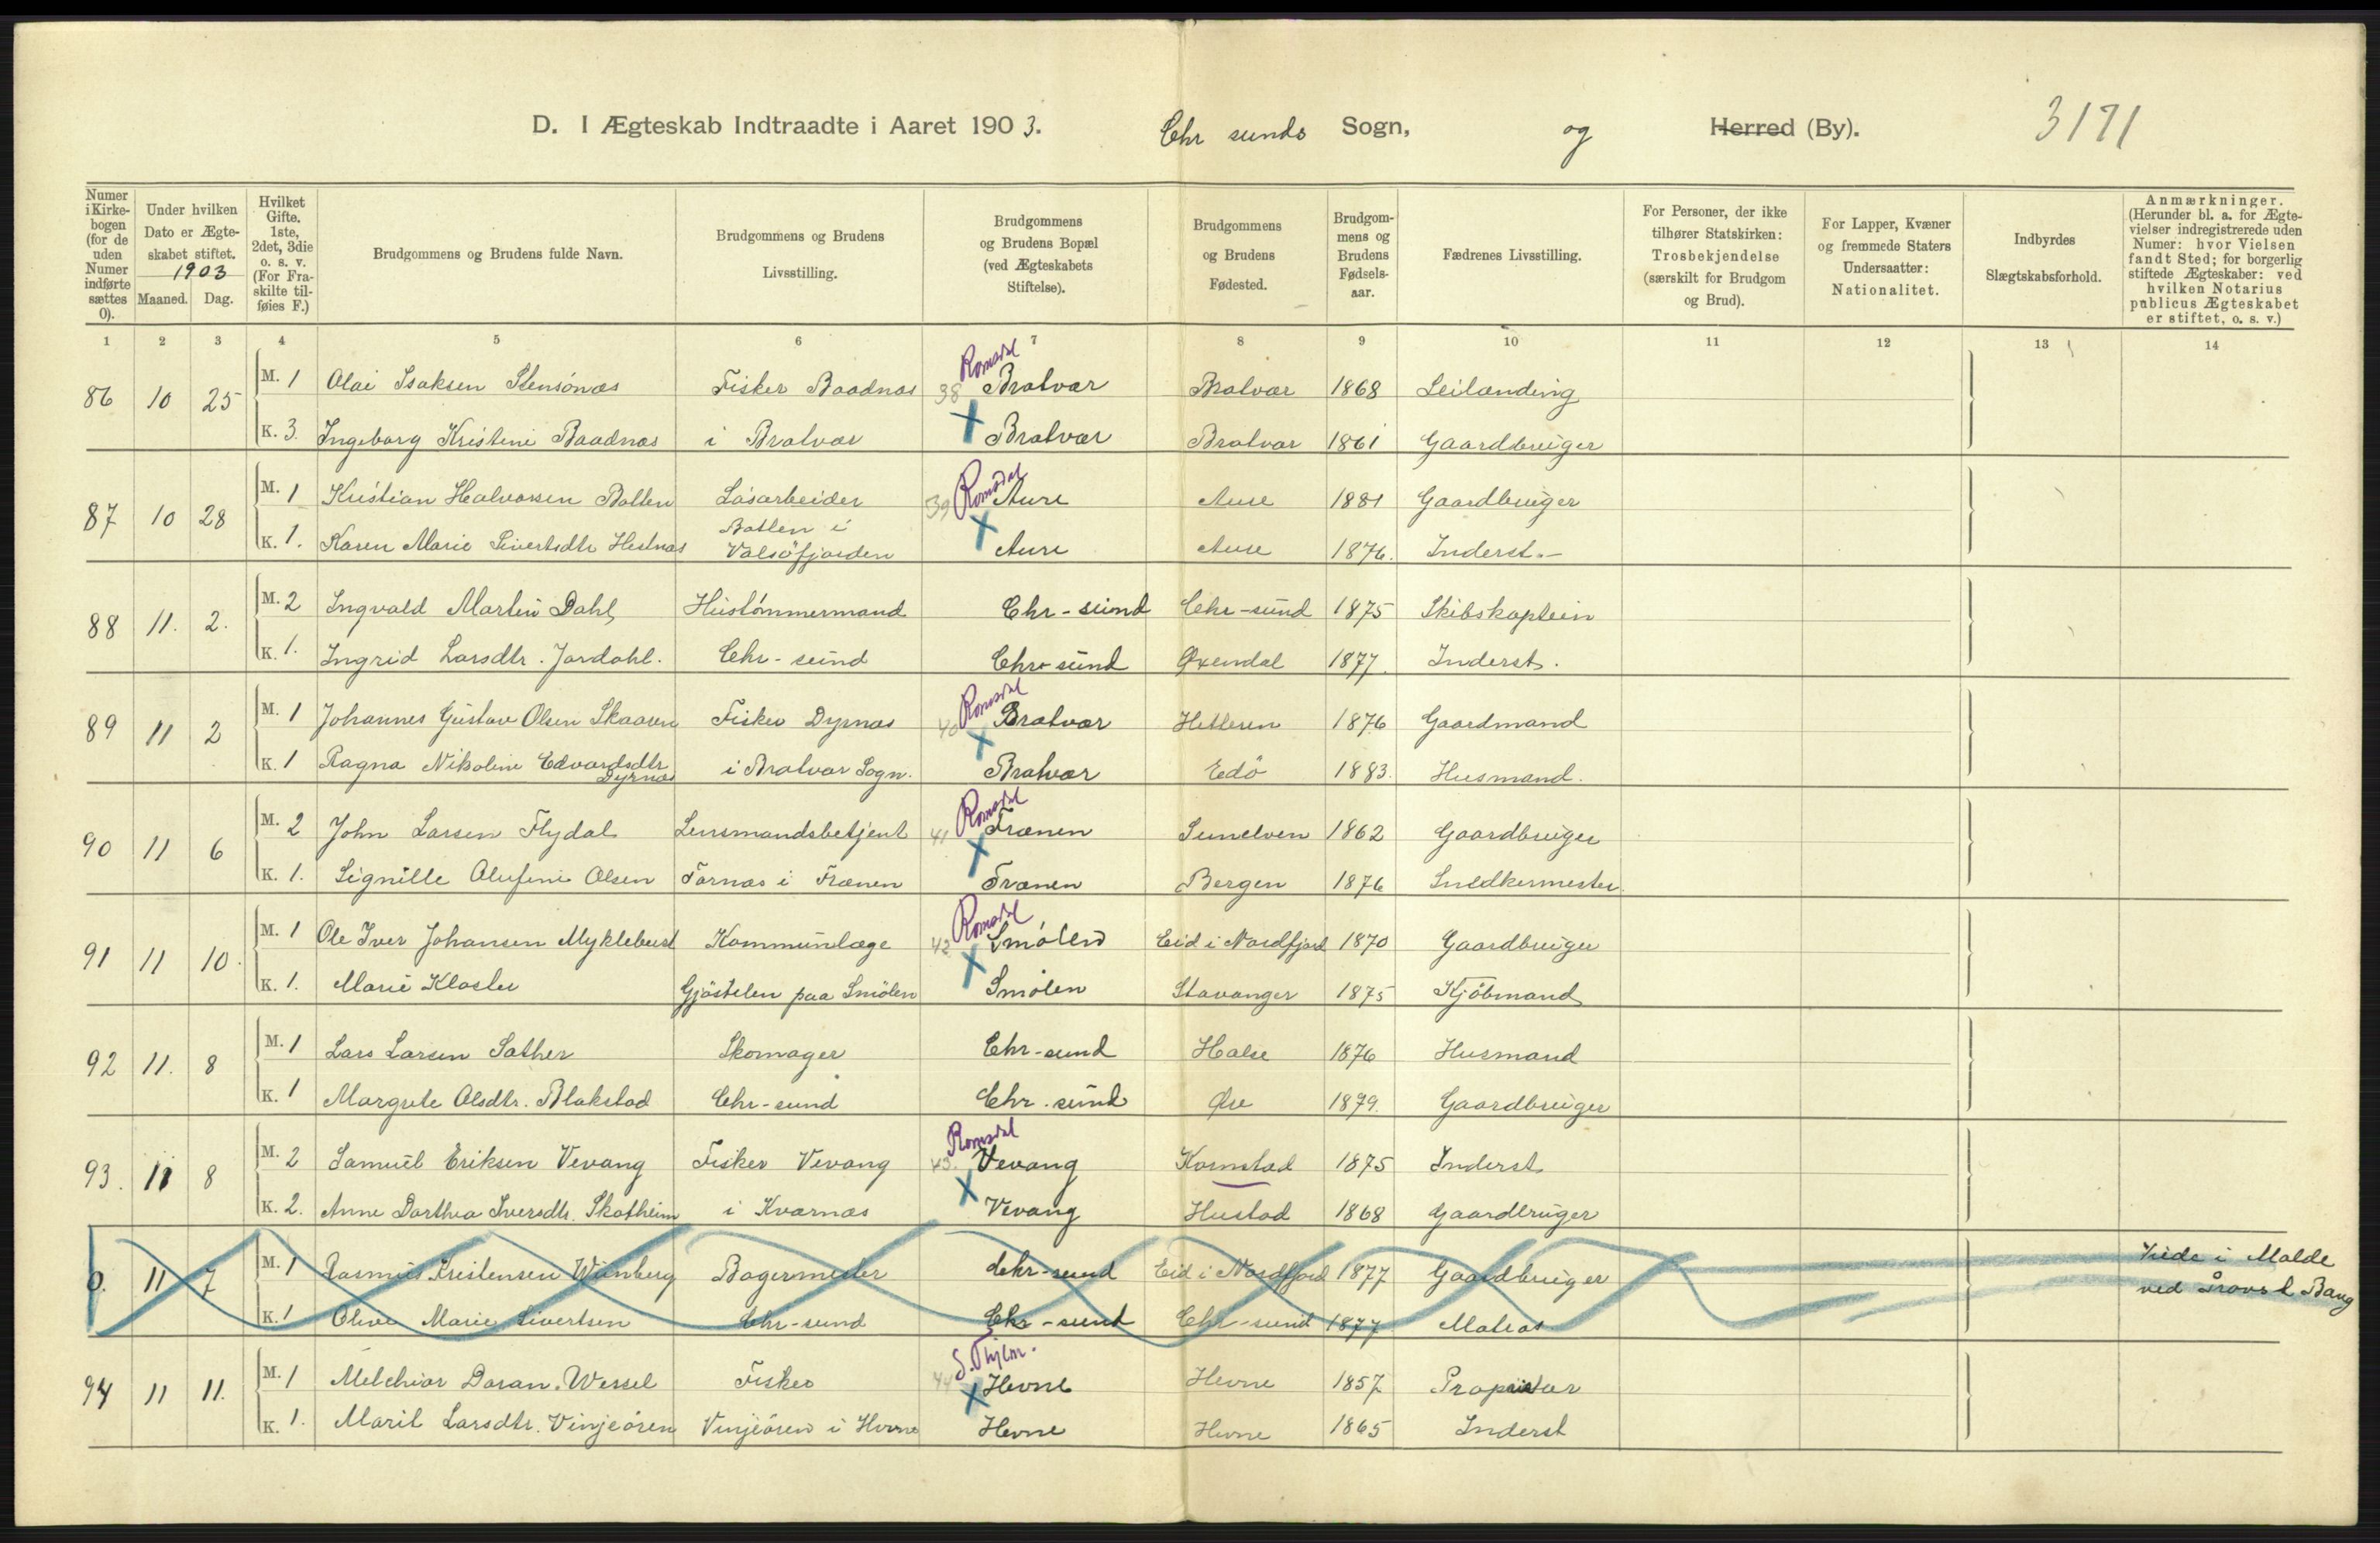 D. I Ægteskab Indtraadte i Aaret 1903. Chr sunds Sogn, og Herred (By). 3171
Numer i Kirkebogen (for de uden Numer indførte sættes 0).
Under hvilken Dato er Ægteskabet stiftet. 1903
Maaned. Dag.
Hvilket Gifte. 1ste, 2det, 3die o. s. v. (For Fraskilte tilføies F.)
Brudgommens og Brudens fulde Navn.
Brudgommens og Brudens Livsstilling.
Brudgommens og Brudens Bopæl (ved Ægteskabets Stiftelse).
Brudgommens og Brudens Fødested.
Brudgommens og Brudens Fødselsaar.
Fædrenes Livsstilling.
For Personer, der ikke tilhører Statskirken: Trosbekjendelse (særskilt for Brudgom og Brud).
For Lapper, Kvæner og fremmede Staters Undersaatter: Nationalitet.
Indbyrdes Slægtskabsforhold.
Anmærkninger. (Herunder bl. a. for Ægtevielser indregistrerede uden Numer: hvor Vielsen fandt Sted; for borgerlig stiftede Ægteskaber: ved hvilken Notarius publicus Ægteskabet er stiftet, o. s. v.)
1 2 3 4 5 6 7 8 9 10 11 12 13 14
Romsdal
86 10 25 M. 1 Olai Isaksen Stensönæs Fisker Baadnæs 38 Bratvær Bratvær 1868 Leilænding
K. 3. Ingeborg Kristine Baadnæs i Bratvær Bratvær Bratvær 1861 Gaardbruger
Romsdal
87 10 28 M. 1 Kristian Halvorsen Botten Løsarbeider 39 Aure Aure 1881 Gaardbruger
Botten i
K. 1. Karen Marie Sivertsdtr Hestnæs Valsöfjorden Aure Aure 1876. Inderst.
88 11. 2. M. 2 Ingvald Martin Dahl Hustömmermand Chr-sund Chr-sund 1875 Skibskaptein
K. 1. Ingrid Larsdtr. Jordahl. Chr-sund Chr-sund Øxendal 1877. Inderst.
Romsdal
89 11 2 M. 1 Johannes Gustav Olsen Skaaren Fisker Dyrnæs 40 Bratvær Hitteren 1876 Gaardmand
K. 1 Ragna Nikoline Edvardsdtr i Bratvær Sogn. Bratvær Edö 1883. Husmand.
Dyrnæs
Romsdal
90 11 6 M. 2 John Larsen Flydal Lensmandsbetjent 41 Frænen Sunelven 1862 Gaardbruger
K. 1. Signille Olufine Olsen Tornæs i Frænen Frænen Bergen 1876 Snedkermester.
Romsdal
91 11 10. M. 1 Ole Iver Johansen Myklebust Kommunlæge 42 Smölen Eid i Nordfjord 1870 Gaardbruger
K. 1. Marie Kloster Gjöstelen paa Smölen Smölen Stavanger 1875 Kjöbmand
92 11. 8 M. 1 Lars Larsen Sæther Skomager Chr-sund Halse 1876 Husmand
K. 1 Margrete Olsdtr. Blakstad Chr-sund Chr.sund Øre 1879. Gaardbruger
Romsdal
93. 11 8 M. 2 Samuel Eriksen Vevang Fisker Vevang 43. Vevang Kornstad 1875 Inderst
K. 2. Anne Dorthea Iversdtr. Skotheim i Kvernæs Vevang Hustad 1868 Gaardbruger
0. 11 7 M. 1 Rasmus Kristensen Winnberg Bagermester Chr-sund Eid i Nordfjord 1877 Gaardbruger Viede i Molde
ved Provst Bang
K. 1 Olive Marie Sivertsen Chr-sund Chr-sund Chr-sund 1877 Matros
S. Thjem.
94 11 11. M. 1 Melchior Doran. Wessel Fisker 44 Hevne Hevne 1857 Proprietær
K. 1. Marit Larsdtr. Vinjeören Vinjeören i Hevne Hevne Hevne 1865 Inderst